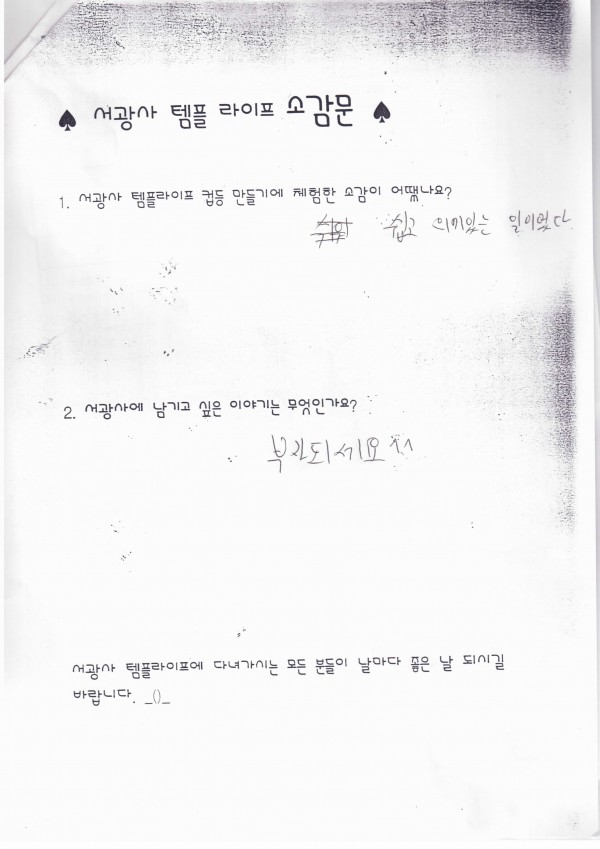 ♠ 서광사 템플 라이프 소감문 ♠
1. 서광사 템플라이프 컵등 만들기에 체험한 소감이 어땠나요?
쉽고 의미있는 일이었다
2. 서광사에 남기고 싶은 이야기는 무엇인가요?
부자되세요^^
서광사 템플라이프에 다녀가시는 모든 분들이 날마다 좋은 날 되시길
바랍니다. _()_